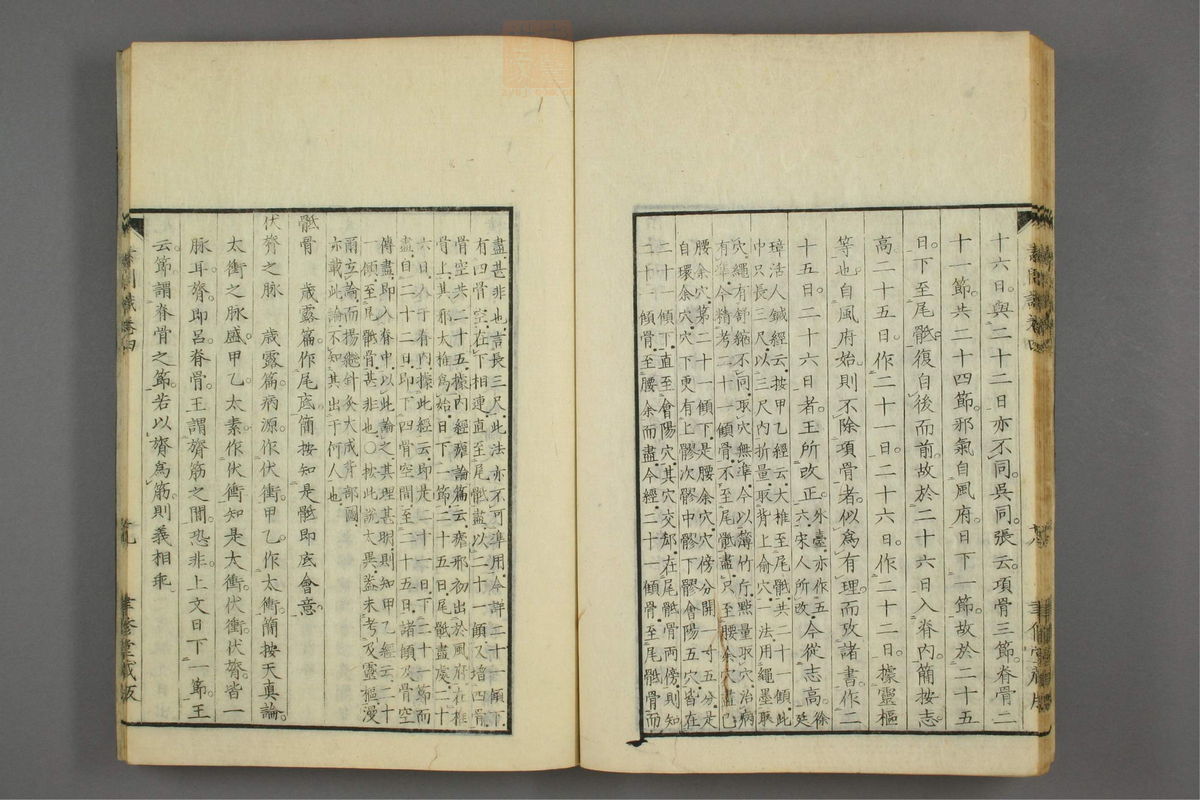 十六日與二十二日亦不同吳同張云項骨三節脊骨二
十一節共二十四節邪氣自風府日下一節故於二十五
日下至尾骶復自後而前故於二十六日入脊内簡按志
高二十五日作二十一日二十六日作二十二日據靈樞
等也自風府始則不除項骨者似爲有理而攷諸書作二
十五日二十六日者王所改正朱臺亦作五六宋人所改今從志高徐廷
璋活人鍼經云按甲乙經云大椎至尾骶共二十一傾此
中只長三尺以三尺内折量取背上俞穴一法用繩墨取
穴繩有舒縮不同取穴無準今以薄竹片點量取穴治病
有準今精考二十一傾骨不至尾骶盡只至腰俞穴盡已
腰俞穴第二十一傾下是腰俞穴穴傍分開一寸五分是
自環俞穴穴下更有上髎次髎中髎下髎會陽五穴皆在
二十一傾下直至會陽穴其穴交却在尾骶骨兩傍則知
二十一傾骨至腰俞而盡今經二十一傾骨至尾骶骨而
盡甚非也言長三尺此法亦不可準用今詳二十一傾下
有四骨空在下相連直至尾骶盡以二十一傾又增四骨
骨空共二十五據内經瘧論篇云瘧邪初出於風府在椎
骨上其邪大椎爲始日下一節二十五日尾骶盡處二十
六日入于脊内據此經云即是二十一日下二十一節而
盡自二十二日即下四骨空間至二十五日諸傾及骨空
傳盡即入脊中以此論之其理甚明則知甲乙經云二十
一傾至尾骶骨甚非也〇按此說太異蓋未考及靈樞漫
爾立論而楊繼針灸大成背部圖
亦載此論不知其出于何人也
骶骨　歲露篇作尾底簡按知是骶即底會意
伏膂之脉　歲露篇病源作伏衝甲乙作太衝簡按天真論
太衝之脉盛甲乙太素作伏衝知是太衝伏衝伏膂皆一
脉耳膂即呂脊骨王謂膂筋之間恐非上文日下一節王
云節謂脊骨之節若以膂爲筋則義相乖
素問識卷四
九
聿修堂藏版